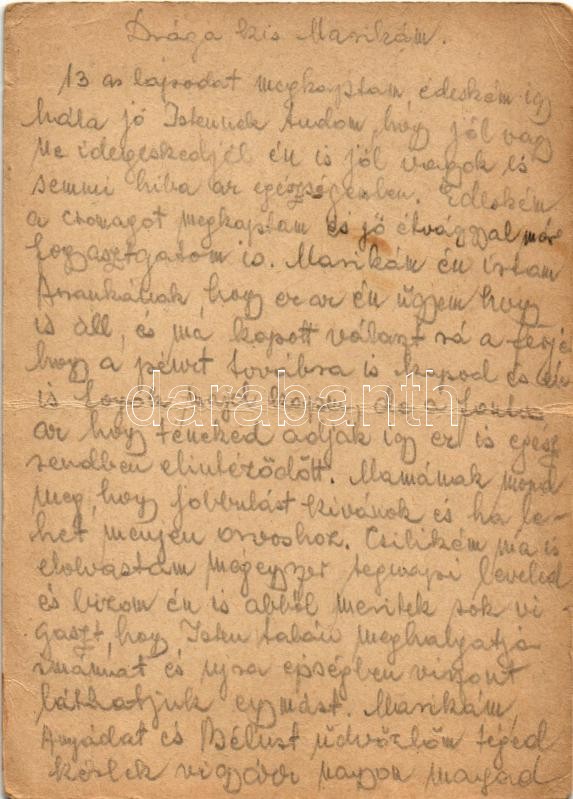 Drága kis Marikám.
13 as lapodat megkaptam édeském így
hála jó Istennek tudom, hogy jól vagy
Ne idegeskedjél én is jól vagok és
semmi hiba az egészségemben. Édeském
a csomagot megkaptam és jó étvággyal már
fogyasztgatom is. Marikám én írtam
Arankának, hogy ez az én ügyem hogy
is áll, és ma kapott választ rá a férje
hogy a pénzt továbbra is kapod és én
is fogok majd kapni, de a
az hogy teneked adják így ez is egész
rendben elintéződött. Mamának mond
meg, hogy jobbulást kívánok és ha le-
het menjen orvoshoz. Csilikém ma is
elolvastam mégegyszer tegnapi leveled
és bizom én is abból merítek sok vi-
gaszt, hogy Isten talán meghalgatja
imánkat és ujra épségben viszont
láthatjuk egymást. Marikám,
Anyádat és Bélust üdvözlöm téged
kérlek vigyázz nagyon magad
darabanth